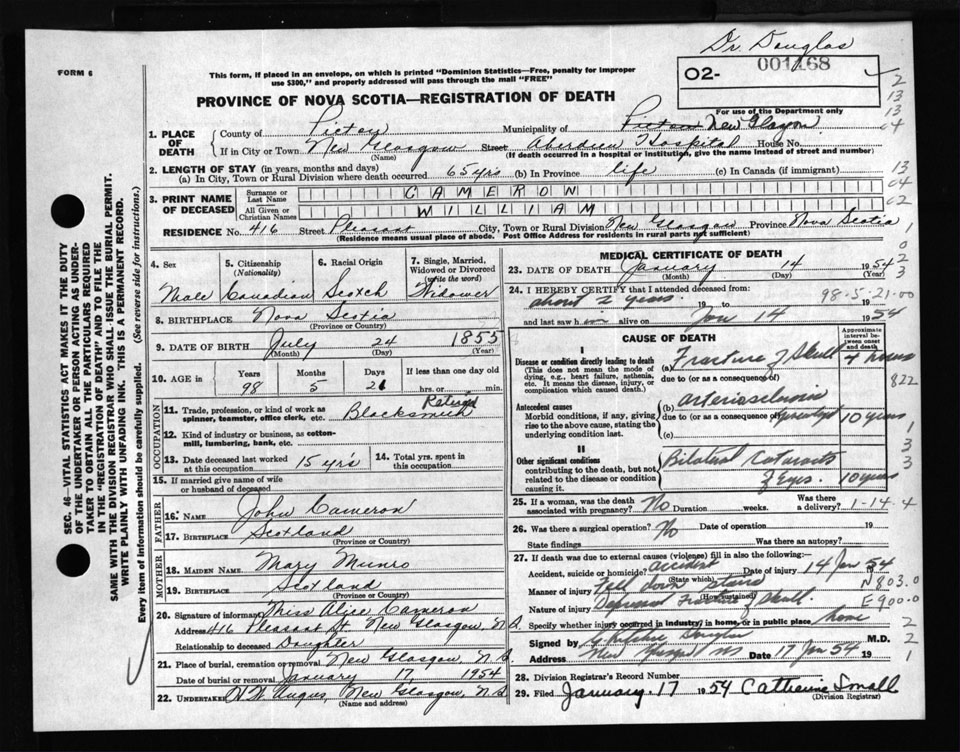 Dr. Douglas
FORM 6
02- 001168
This form, if placed in an envelope, on which is printed "Dominion Statistics—Free, penalty for improper
use $300," and properly addressed will pass through the mail "FREE"
PROVINCE OF NOVA SCOTIA—REGISTRATION OF DEATH
For use of the Department only
1. PLACE OF DEATH
County of Pictou Municipality of Pictou New Glasgow
If in City or Town New Glasgow Street Aberdeen Hospital House No.
(Name) (If death occurred in a hospital or institution, give the name instead of street and number)
2. LENGTH OF STAY (in years, months and days)
(a) In City, Town or Rural Division where death occurred 65 yrs (b) In Province life (c) In Canada (if immigrant)
3. PRINT NAME OF DECEASED
Surname or Last Name CAMERON
All Given or Christian Names WILLIAM
RESIDENCE No. 416 Street Pleasant City, Town or Rural Division New Glasgow Province Nova Scotia
(Residence means usual place of abode. Post Office Address for residents in rural parts not sufficient)
4. Sex Male
5. Citizenship (Nationality) Canadian
6. Racial Origin Scotch
7. Single, Married, Widowed or Divorced (write the word) Widower
8. BIRTHPLACE Nova Scotia
(Province or Country)
9. DATE OF BIRTH July 24 1855
(Month) (Day) (Year)
10. AGE in Years 98 Months 5 Days 21 If less than one day old hrs. or min.
OCCUPATION
11. Trade, profession, or kind of work as spinner, teamster, office clerk, etc. Retired Blacksmith
12. Kind of industry or business, as cotton-mill, lumbering, bank, etc.
13. Date deceased last worked at this occupation 15 yrs
14. Total yrs. spent in this occupation
15. If married give name of wife or husband of deceased
FATHER
16. NAME John Cameron
17. BIRTHPLACE Scotland
(Province or Country)
MOTHER
18. MAIDEN NAME Mary Munro
19. BIRTHPLACE Scotland
(Province or Country)
20. Signature of informant Miss Alice Cameron
Address 416 Pleasant St. New Glasgow, N.S.
Relationship to deceased Daughter
21. Place of burial, cremation or removal New Glasgow, N.S.
Date of burial or removal January 17, 1954
22. UNDERTAKER New Glasgow, N.S.
(Name and address)
MEDICAL CERTIFICATE OF DEATH
23. DATE OF DEATH January 14 1954
(Month) (Day)
24. I HEREBY CERTIFY that I attended deceased from:
98-5-21-00
about 2 years 19 to 19
and last saw him alive on Jan 14 1954
CAUSE OF DEATH
Approximate interval between onset and death
I
Disease or condition directly leading to death
(This does not mean the mode of dying, e.g., heart failure, asthenia, etc. It means the disease, injury, or complication which caused death.)
(a) Fracture of Skull hours
due to (or as a consequence of)
822
Antecedent causes
Morbid conditions, if any, giving rise to the above cause, stating the underlying condition last.
(b)
due to (or as a consequence of) 10 years
(c)
II
Other significant conditions
contributing to the death, but not related to the disease or condition causing it
Bilateral Cataracts
of Eyes. 10 years
25. If a woman, was the death associated with pregnancy? No Duration weeks. Was there a delivery? 1-14-4
26. Was there a surgical operation? No Date of operation 19
State findings Was there an autopsy?
27. If death was due to external causes (violence) fill in also the following:
Accident, suicide or homicide? accident Date of injury 14 Jan 54
(State which)
Manner of injury Fell down stairs N 803.0
(How sustained)
Nature of injury Depressed Fracture of Skull. E 900.0
Specify whether injury occurred in industry, in home, or in public place home
Signed by Douglas M.D.
Address New Glasgow NS Date 17 Jan 54 19
28. Division Registrar's Record Number
29. Filed January 17 1954 Catherine Small
(Division Registrar)
SEC. 46 VITAL STATISTICS ACT MAKES IT THE DUTY
OF THE UNDERTAKER OR PERSON ACTING AS UNDER-
TAKER TO OBTAIN ALL THE PARTICULARS REQUIRED
IN THE "REGISTRATION OF DEATH" AND TO FILE THE
SAME WITH THE DIVISION REGISTRAR WHO SHALL ISSUE THE BURIAL PERMIT.
WRITE PLAINLY WITH UNFADING INK. THIS IS A PERMANENT RECORD.
Every item of information should be carefully supplied. (See reverse side for instructions.)
2
13
13
04
13
04
02
1
0
2
3
1
3
3
2
2
1